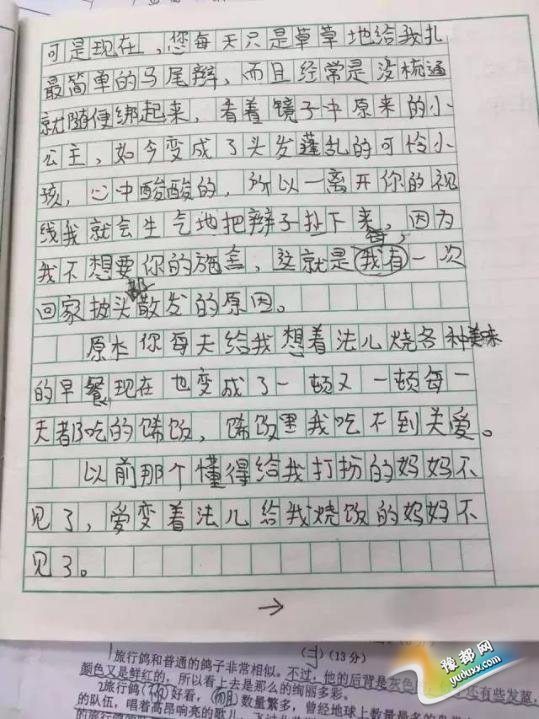 可是现在，您每天只是草草地给我扎
最简单的马尾辫，而且经常是没梳通
就随便绑起来，看着镜子中原来的小
公主，如今变成了头发蓬乱的可怜小
孩，心中酸酸的，所以一离开你的视
线我就会生气地把辫子扯下来，因为
我不想要你的施舍，这就是我有每一次
回家都披头散发的原因。
原本你每天给我想着法儿烧各种美味
的早餐现在也变成了一顿又一顿每一
天都吃的馊饭，馊饭里我吃不到关爱。
以前那个懂得给我打扮的妈妈不
见了，爱变着法儿给我烧饭的妈妈不
见了。
→
旅行鸽和普通的鸽子非常相似。不过，他的后背是灰色
(13分)
颜色又是鲜红的，所以看上去是那么的绚丽多彩。
还有些发蓝，
2旅行鸽
好看，
数量繁多，曾经地球上数量最多的
的队伍，唱着高昂响亮的歌儿，
豫都网
yuduxx.com